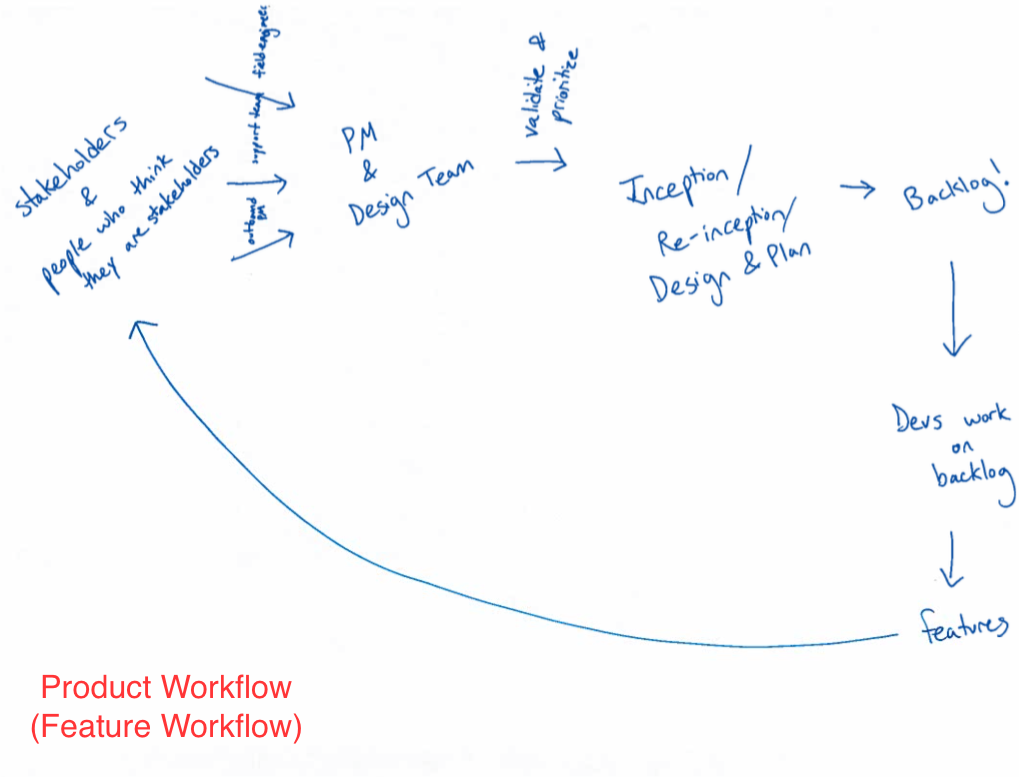 stakeholders
&
people who think
they are stakeholders
field engineer
support team
outbound
PM
PM
&
Design Team
validate &
prioritize
Inception/
Re-inception/
Design & Plan
Backlog!
Devs work
on
backlog
features
Product Workflow
(Feature Workflow)